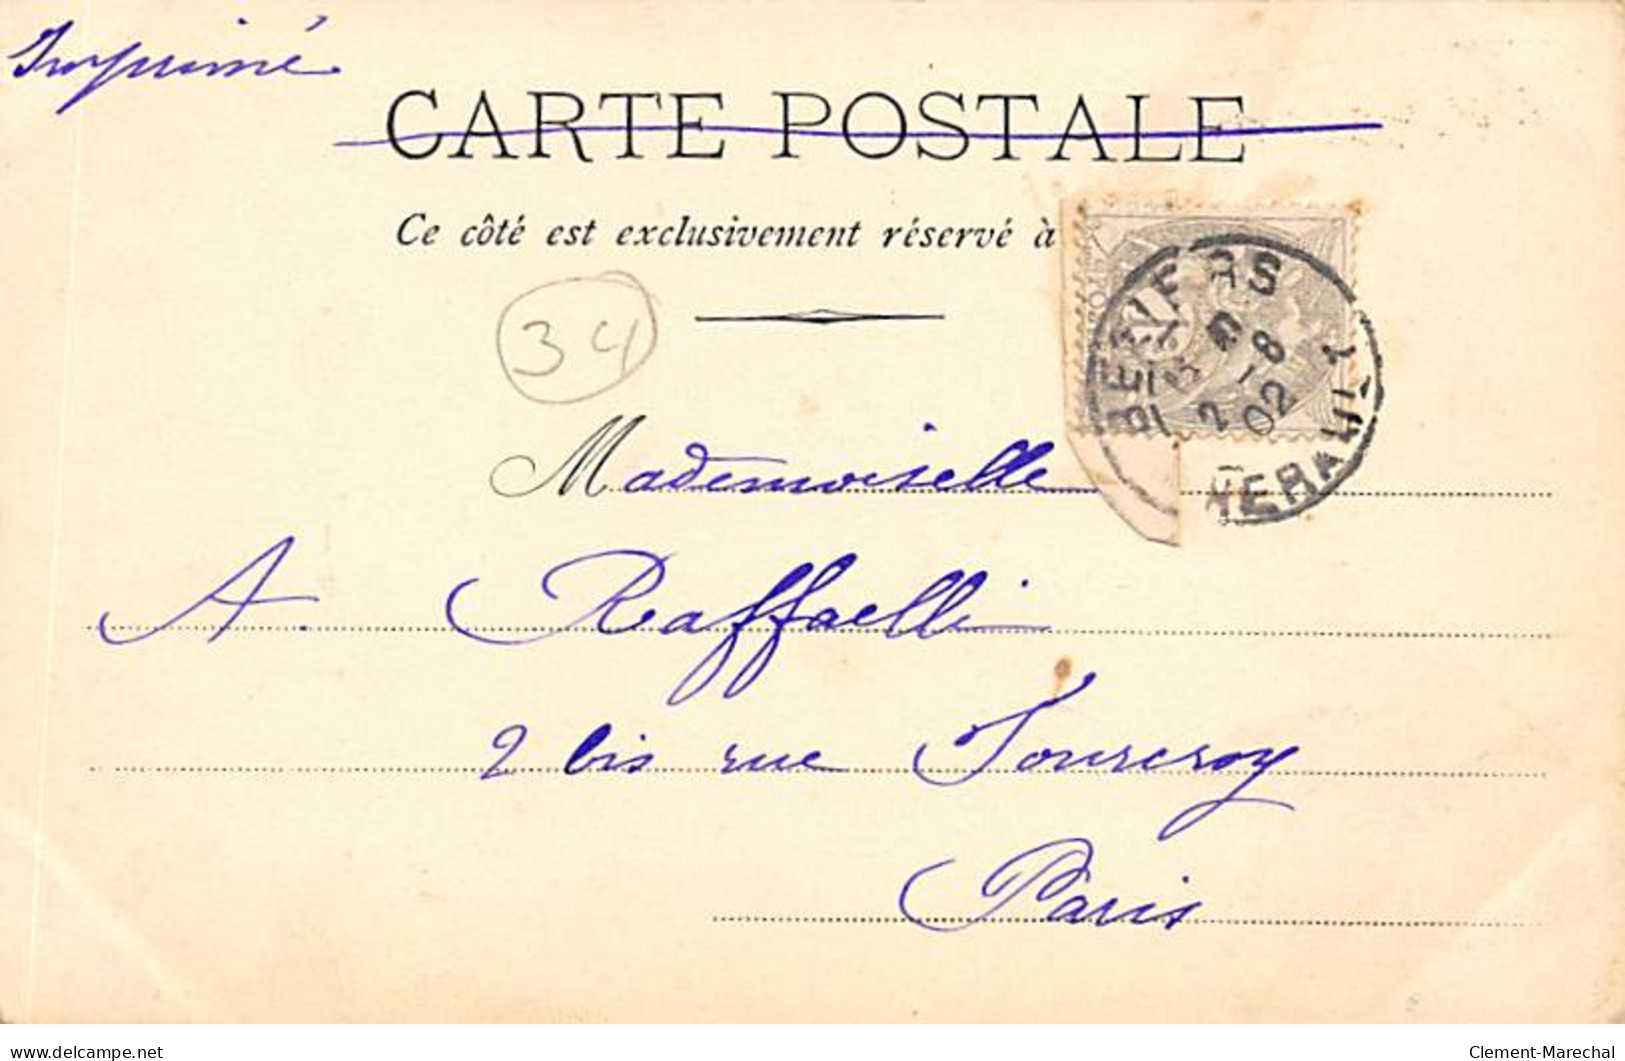 Imprimé
CARTE POSTALE
Ce côté est exclusivement réservé à
34
BEZIERS
8
2 02
HERAULT
Mademoiselle
A. Raffaelli
2 bis rue Fourcroy
Paris
www.delcampe.net
Clement-Marechal